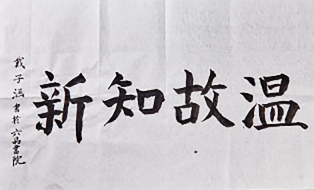 温故知新
戴子涵書於六品書院